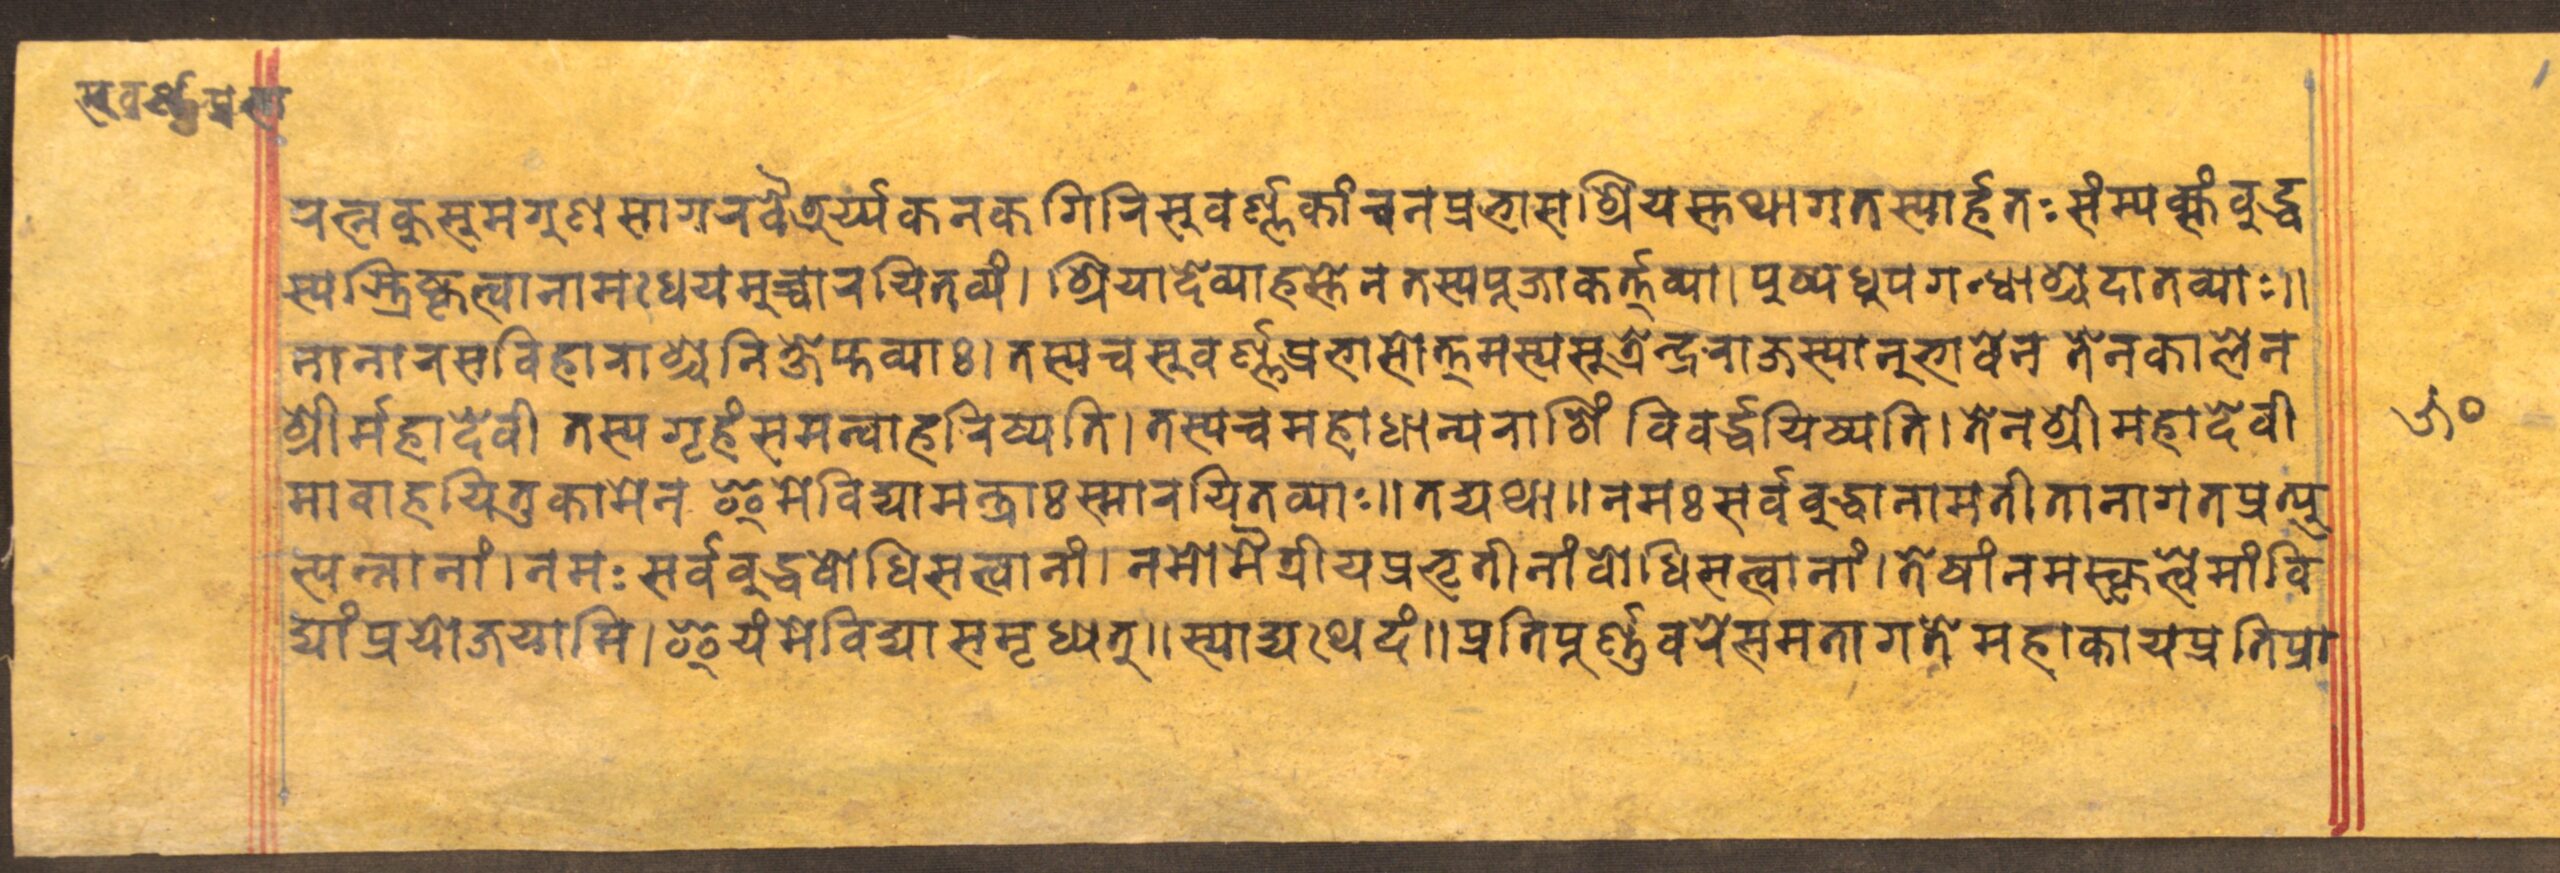 सुवर्ण्णप्रभा
रत्नकुसुमगुणसागरवैडूर्य्यकनकगिरिसुवर्ण्णकांचनप्रभासश्रियस्तथागतस्यार्हतः संम्यक्संवुद्ध
स्यस्त्रिष्कृत्वानामधेयमुच्चारयितव्यं। श्रियादेव्याहस्तेन तस्यपूजाकर्त्तव्या। पुष्पधुपगन्धाश्चदातव्याः॥
नानारसविहाराश्चनिक्षेप्तव्याः। तस्यचसुवर्ण्णप्रभासोत्तमस्यसूत्रेन्द्रराजस्यानुभावेन तेनकालेन
श्रीर्महादेवी तस्यगृहंसमन्वाहरिष्यति। तस्यचमहाधान्यराशिं विवर्द्धयिष्यति। तेनश्रीमहादेवी
मावाहयितुकामेन इमेविद्यामन्त्राः स्मारयितव्याः॥ तद्यथा॥ नमः सर्ववुद्धानामतीतानागतप्रत्यु
त्पन्नानां। नमः सर्ववुद्धवोधिसत्वानां। नमोमैत्रीयप्रभृतीनांवोधिसत्वानां। तेषांनमस्कृत्वेमांवि
द्यांप्रयोजयामि। इयंमेविद्यासमृध्यतु॥ स्याद्यथेदं॥ प्रतिपूर्ण्णवरेसमतागते महाकायप्रतिप्रा
५०